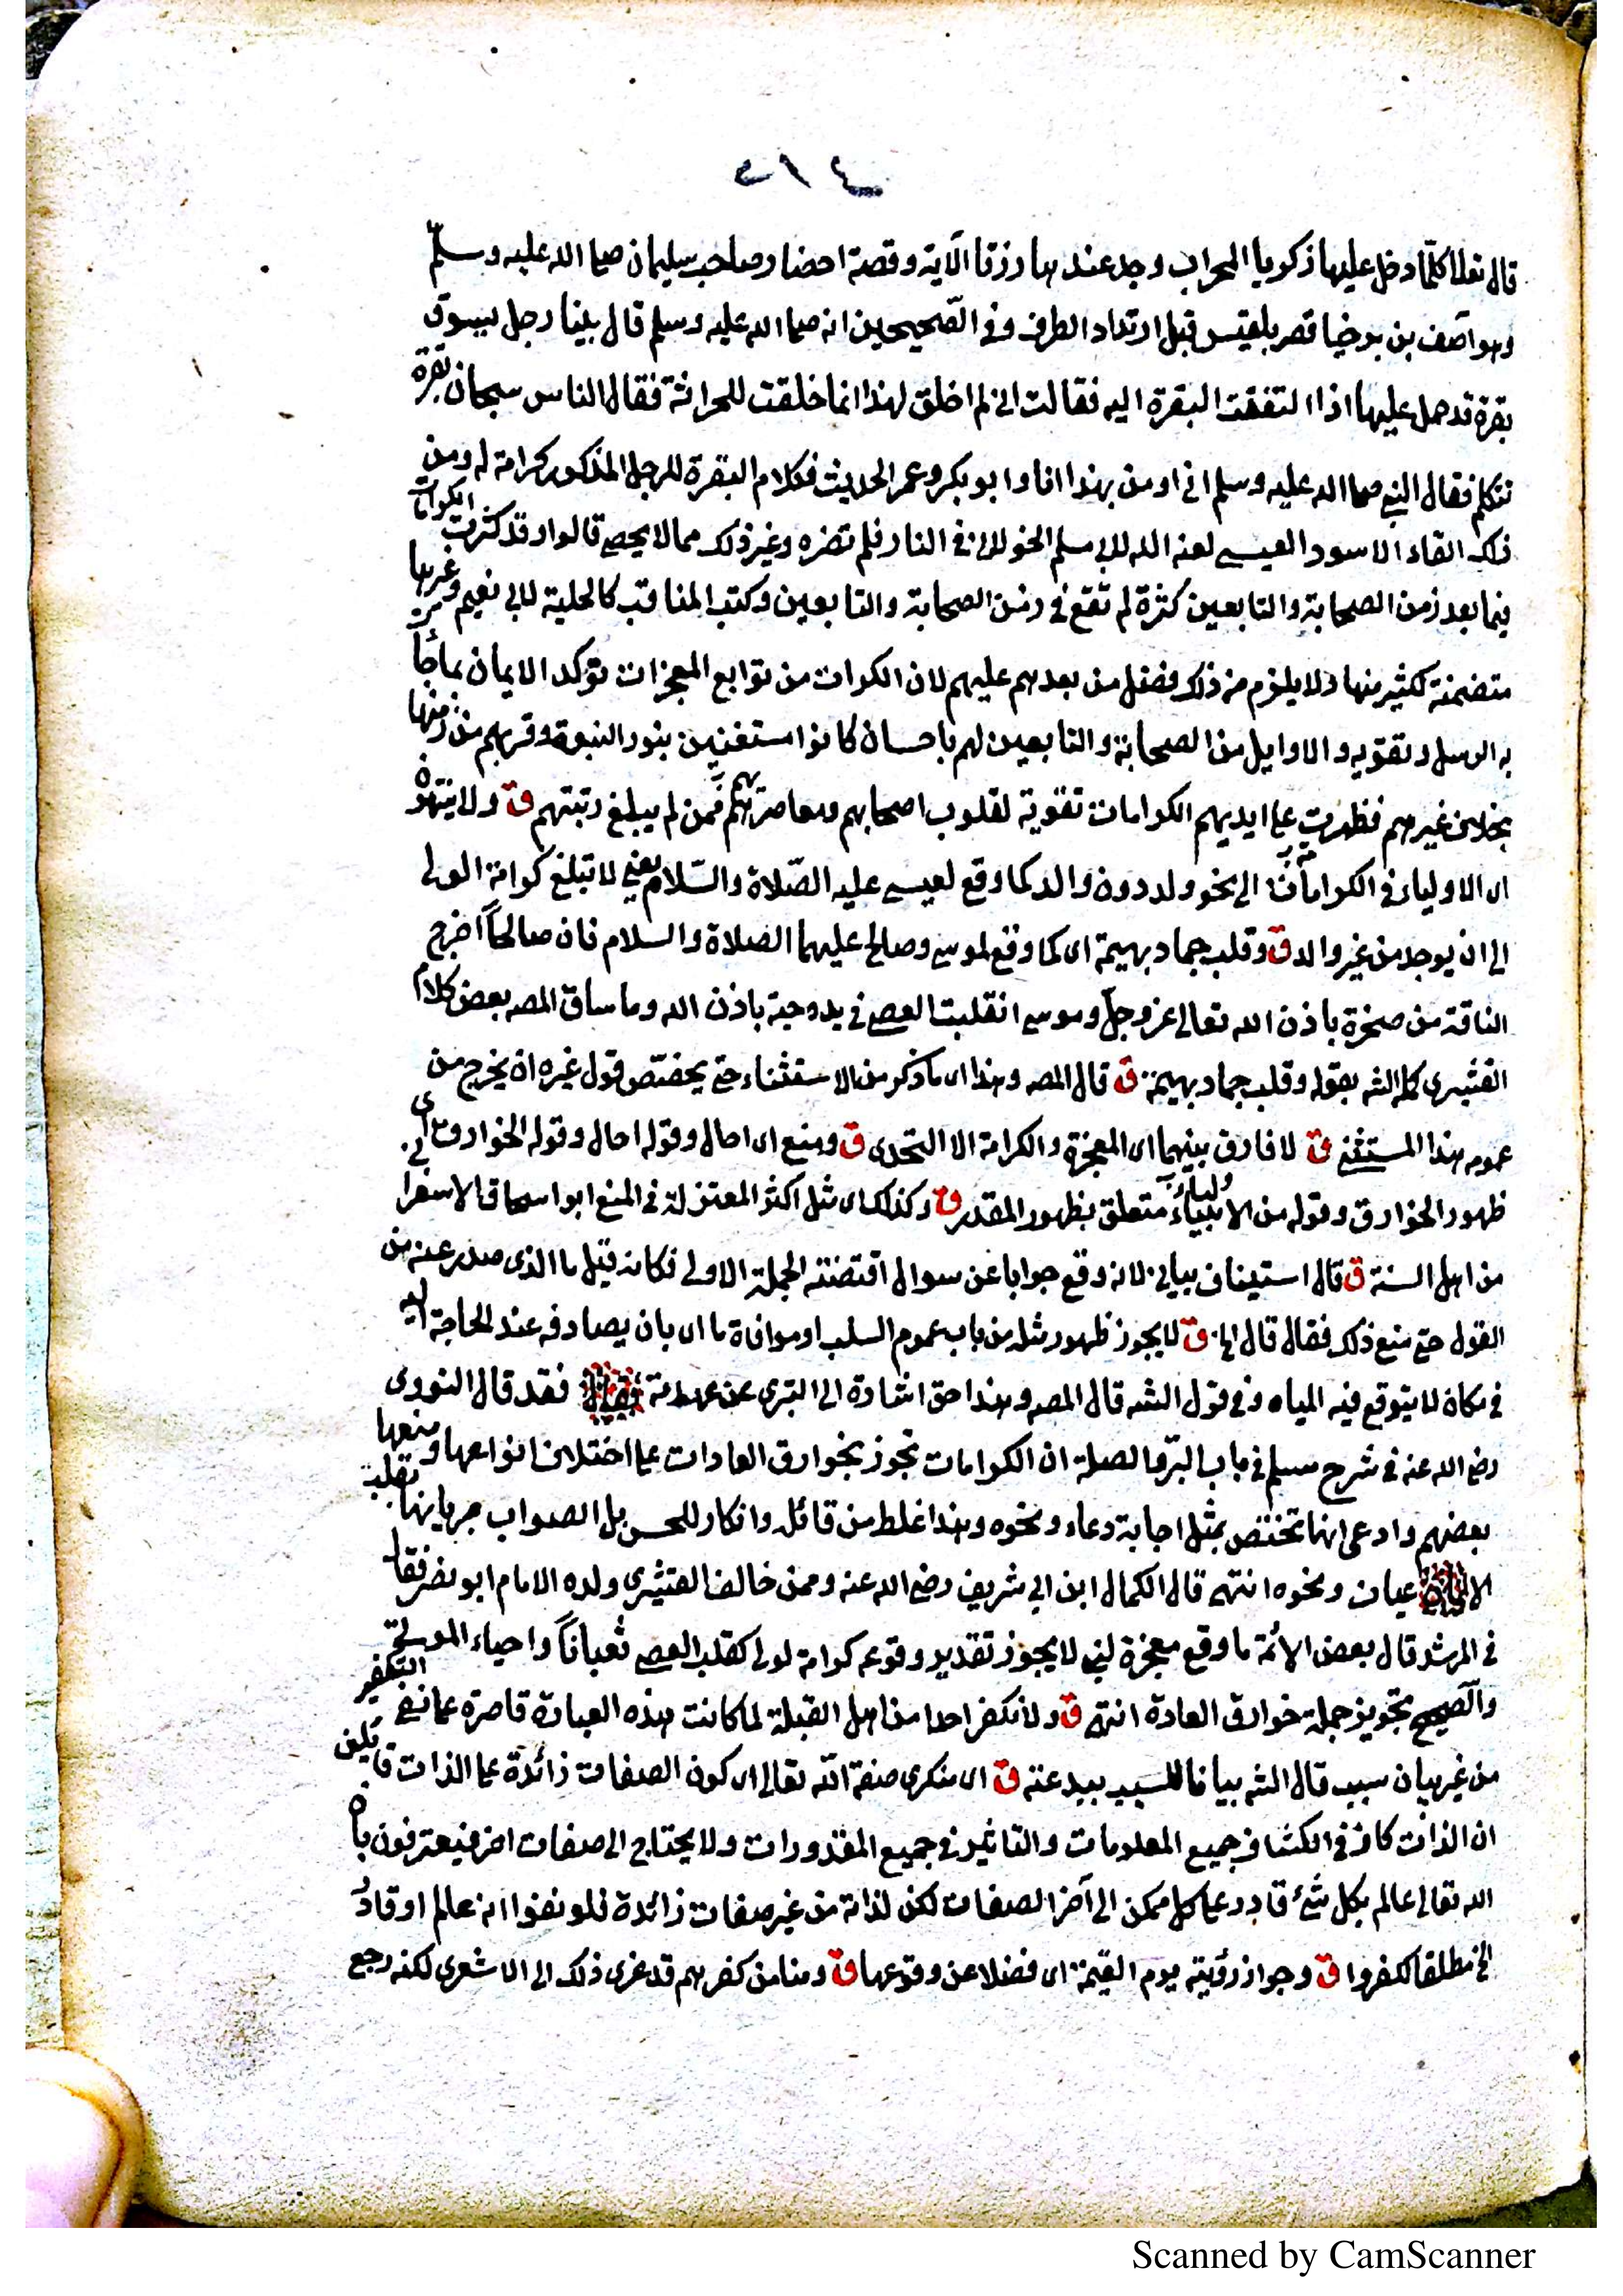 ٤١٢
قال تعالى كلّما دخل عليها زكريا المحراب وجد عندها رزقا الآية وقصة احضار صاحب سليمان صلى الله عليه وسلّم
وهو آصف بن برخيا قصر بلقيس قبل ارتداد الطرف وفي الصّحيحين انه صلى الله عليه وسلم قال بينا رجل يسوق
بقرة قد حمل عليها اذا التفتت البقرة اليه فقالت اني لم اخلق لهذا انما خلقت للحراثة فقال الناس سبحان بقرة
تتكلم فقال النبي صلى الله عليه وسلم اني اومن بهذا انا وابو بكر وعمر الحديث فكلام البقرة للرجل المذكور كرامة له ومن
ذلك القاء الاسود العيسي لعنه الله لابي مسلم الخولاني في النار فلم تضره وغير ذلك مما لا يحصى قالوا وقد كثرت الكرامات
فيما بعد زمن الصحابة والتابعين كثرة لم تقع في زمن الصحابة والتابعين وكتب المناقب كالحلية لابي نعيم وغيرها
متضمنة لكثير منها ولا يلزم من ذلك فضل من بعدهم عليهم لان الكرامات من توابع المعجزات تؤكد الايمان بما جاء
به الرسل وتقويه والاوايل من الصحابة والتابعين لهم باحسان كانوا مستغنين بنور النبوة وقربهم من زمنها
بخلاف غيرهم فظهرت على ايديهم الكرامات تقوية لقلوب اصحابهم ومعاصريهم ممن لم يبلغ رتبتهم ق ولا ينتهون
اى الاولياء في الكرامات الى نحو ولد دون والد كما وقع لعيسى عليه الصّلاة والسّلام يعني لا تبلغ كرامة الولي
الى ان يوجد من غير والد ق وقلب جماد بهيمة اى كما وقع لموسى وصالح عليهما الصلاة والسلام فان صالحاً اخرج
الناقة من صخرة باذن الله تعالى عز وجلّ وموسى انقلبت العصى في يده حية باذن الله وما ساق المصه بعض كلام
القشيرى كمله الشه بقوله وقلب جماد بهيمة ق قال المصه وهذا اى ما ذكر من الاستثناء حتى يختصّ قول غيره ان يخرج من
عمومه هذا المستثنى ق لا فارق بينهما اى المعجزة والكرامة الا التحدى ق ومنع اى احال وقوله احال وقوله الخوارق اى
ظهور الخوارق وقوله من الاولياء متعلق بظهور المقدر ق وكذلك اى مثل اكثر المعتزلة في المنع ابو اسحاق الاسفرا
من اهل السنة ق قال استيناف بياني لانه وقع جوابا عن سوال اقتضته الجملة الاولى فكانه قيل ما الذى صدر عنه من
القول حتى منع ذلك فقال قال الخ ق لا يجوز ظهور مثله من باب عموم السلب او موافاة ماء اى بان يصادفه عند الحاجة اليه
في مكان لا يتوقع فيه المياه وفي قول الشه قال المصه وهذا حق اشارة الى التبرى عن عهدته فقد قال النووى
رضي الله عنه في شرح مسلم في باب البرّ والصلة ان الكرامات تجوز بخوارق العادات على اختلاف انواعها ومنعها
بعضهم وادعى انها تختص بمثل اجابة دعاء ونحوه وهذا غلط من قائله وانكار للحس بل الصواب جريانها بقلب
الاعيان ونحوه انتهى قال الكمال ابن ابي شريف رضي الله عنه وممن خالف القشيرى ولده الامام ابو نصر فقا
في المرشد قال بعض الائمة ما وقع معجزة لنبي لا يجوز تقدير وقوعه كرامة لولي كقلب العصى ثعباناً واحياء الموتى
والصحيح تجويز جملة خوارق العادة انتهى ق ولا نكفر احدا من اهل القبلة لما كانت هذه العبارة قاصرة على نفي التكفير
من غير بيان سبب قال الشه بيانا للسبب ببدعته ق اى منكرى صفة الله تعالى اى كون الصفات زائدة على الذات قائلين
ان الذات كاف في انكشاف جميع المعلومات والتاثير في جميع المقدورات ولا يحتاج الى صفات اخر فيعترفون بان
الله تعالى عالم بكل شئ قادر على كل ممكن الى آخر الصفات لكن لذاته من غير صفات زائدة فلو نفوا انه عالم او قادر
الخ مطلقا لكفروا ق وجواز رؤيته يوم القيمة اى فضلا عن وقوعها ق ومنا من كفرهم قد عزى ذلك الى الاشعرى لكنه رجع
Scanned by CamScanner